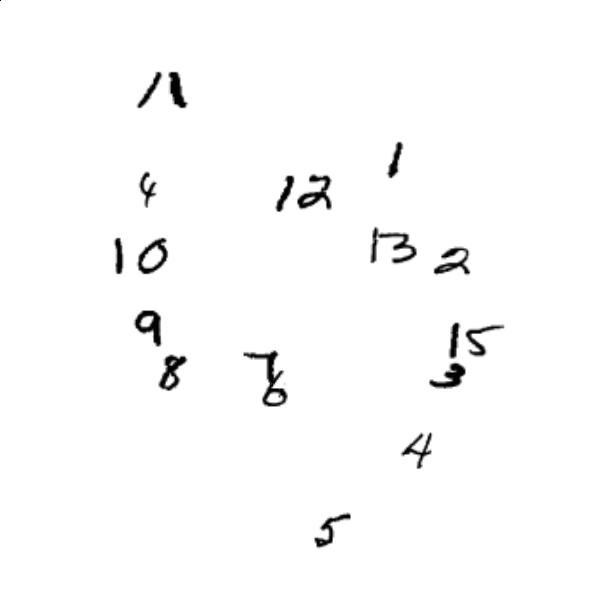 11
1
4 12
10 13 2
9 15
8 7 3
6
4
5